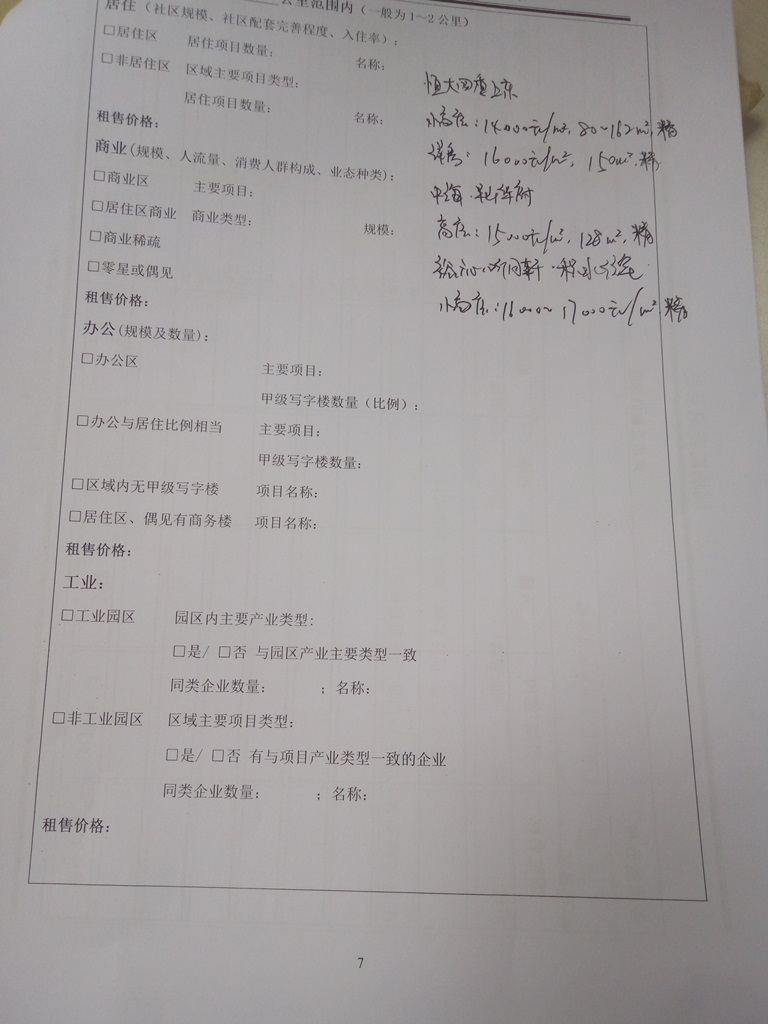 公里范围内（一般为1～2公里）
居住（社区规模、社区配套完善程度、入住率）：
□居住区 居住项目数量： 名称：
□非居住区 区域主要项目类型：
居住项目数量： 名称：
恒大四季上东
租售价格：
小高层：14000元/m², 80~162m², 精
洋房：16000元/m², 150m², 精
商业(规模、人流量、消费人群构成、业态种类)：
□商业区 主要项目：
中海
□居住区商业 商业类型： 规模：
高层：15000元/m², 128m², 精
□商业稀疏
□零星或偶见
租售价格：
小高层：16000~17000元/m² 精
办公(规模及数量)：
□办公区 主要项目：
甲级写字楼数量（比例）：
□办公与居住比例相当 主要项目：
甲级写字楼数量：
□区域内无甲级写字楼 项目名称：
□居住区、偶见有商务楼 项目名称：
租售价格：
工业：
□工业园区 园区内主要产业类型:
□是/ □否 与园区产业主要类型一致
同类企业数量： ；名称：
□非工业园区 区域主要项目类型：
□是/ □否 有与项目产业类型一致的企业
同类企业数量： ；名称：
租售价格：
7